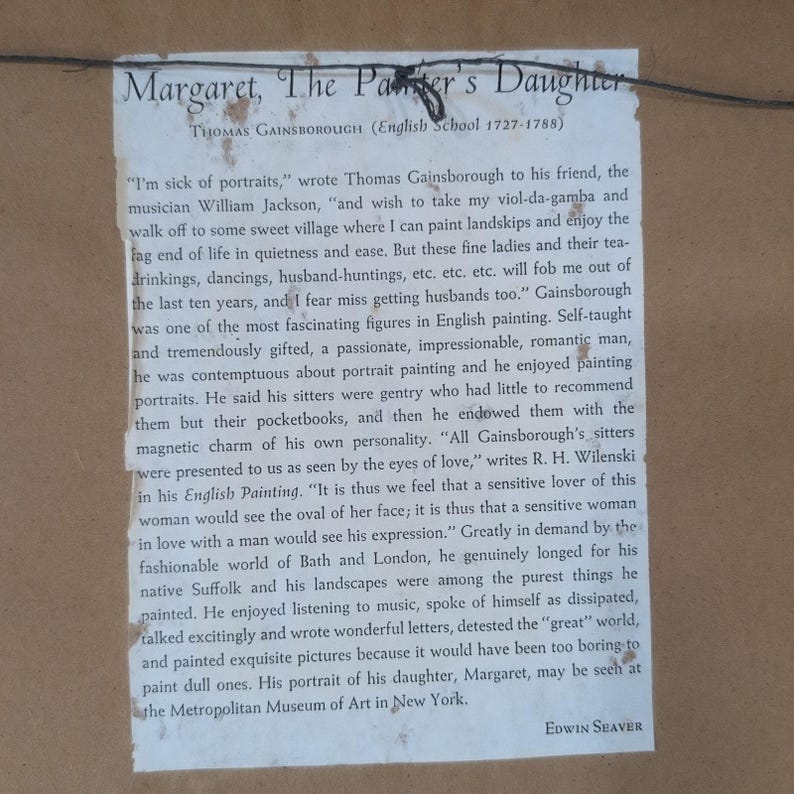 Margaret, The Painter's Daughter
Thomas Gainsborough (English School 1727-1788)
"I'm sick of portraits," wrote Thomas Gainsborough to his friend, the
musician William Jackson, "and wish to take my viol-da-gamba and
walk off to some sweet village where I can paint landskips and enjoy the
fag end of life in quietness and ease. But these fine ladies and their tea-
drinkings, dancings, husband-huntings, etc. etc. etc. will fob me out of
the last ten years, and I fear miss getting husbands too." Gainsborough
was one of the most fascinating figures in English painting. Self-taught
and tremendously gifted, a passionate, impressionable, romantic man,
he was contemptuous about portrait painting and he enjoyed painting
portraits. He said his sitters were gentry who had little to recommend
them but their pocketbooks, and then he endowed them with the
magnetic charm of his own personality. "All Gainsborough's sitters
were presented to us as seen by the eyes of love," writes R. H. Wilenski
in his English Painting. "It is thus we feel that a sensitive lover of this
woman would see the oval of her face; it is thus that a sensitive woman
in love with a man would see his expression." Greatly in demand by the
fashionable world of Bath and London, he genuinely longed for his
native Suffolk and his landscapes were among the purest things he
painted. He enjoyed listening to music, spoke of himself as dissipated,
talked excitingly and wrote wonderful letters, detested the "great" world,
and painted exquisite pictures because it would have been too boring to
paint dull ones. His portrait of his daughter, Margaret, may be seen at
the Metropolitan Museum of Art in New York.
Edwin Seaver